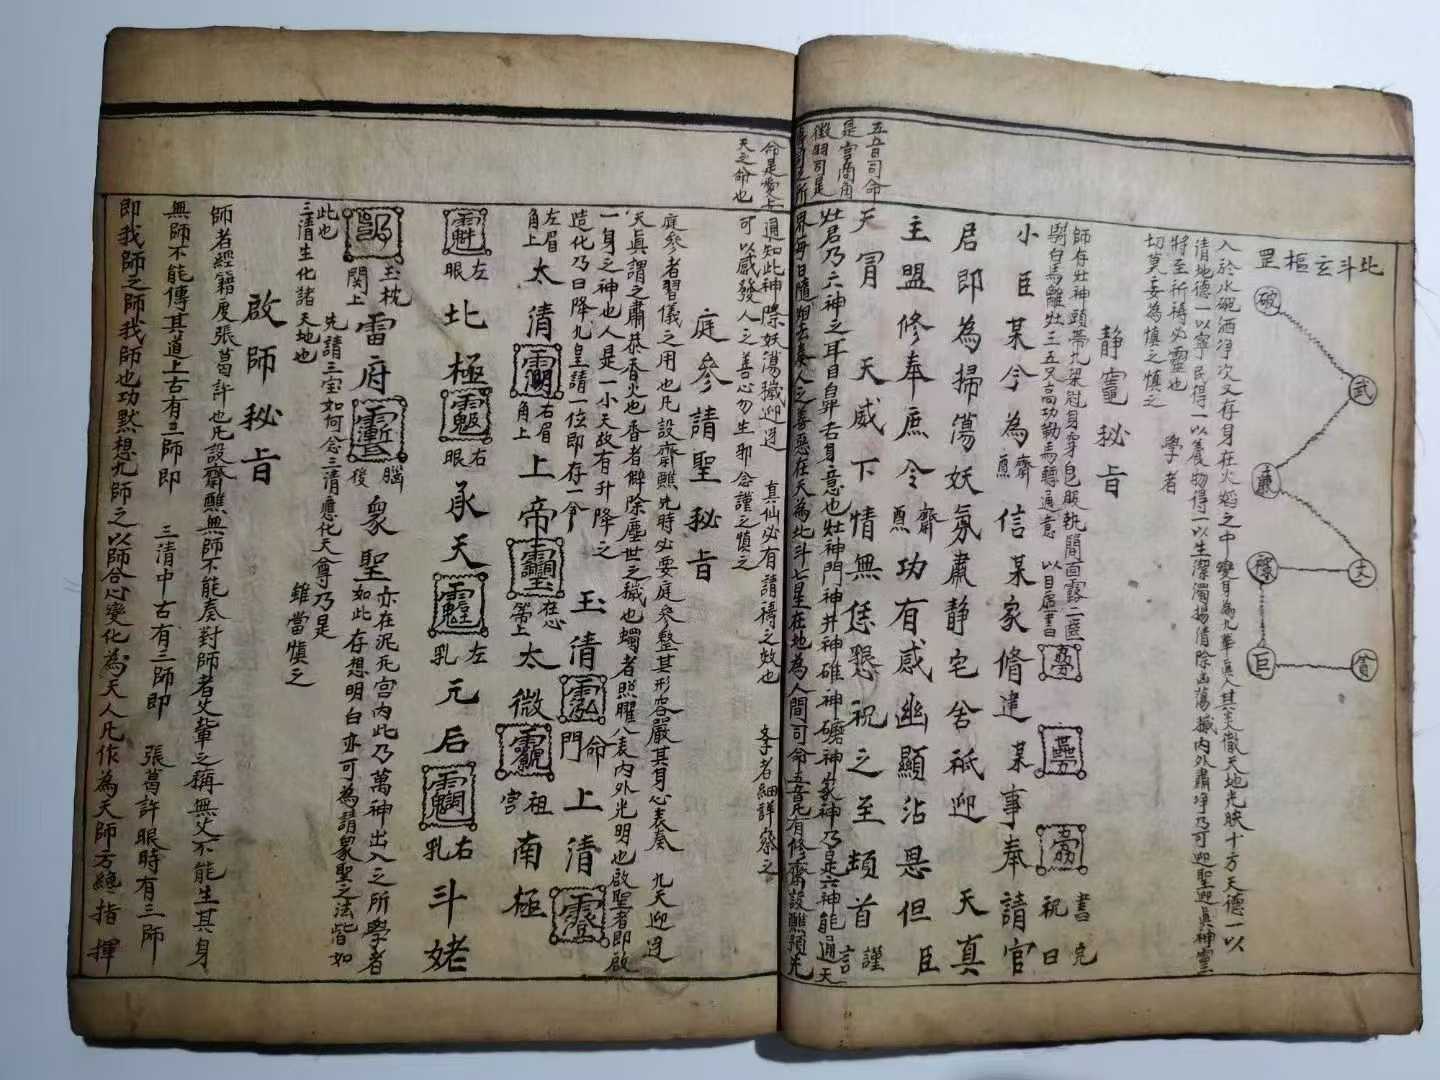 北斗玄樞罡
破
武
廉
文
祿
巨
貪
入於水碗洒淨次又存身在火焰之中變身為九華真人其炁徹天地光映十方天德一以
清地德一以寧民得一以養物得一以生潔濁揚清除凶蕩穢內外肅淨乃可迎聖迎真神靈
將至祈禱必靈也 學者
切莫妄為慎之慎之
靜竈秘旨
師存灶神頭帶九梁冠身穿皂服執簡面露二匡
與白馬離灶三五尺高功勒馬轉通意 以目虛書
書完
祝曰
小臣某今為齋熏信某家脩建某事奉請官
君即為掃蕩妖氛肅靜宅舍祇迎 天真
主盟修奉庶令齋熏功有感幽顯沾恩但臣
天 天威下情無恁懇祝之至頓首謹言
灶君乃六神之耳目鼻舌身意也灶神門神井神碓神磨神家神乃是六神能通天
五音司命
是宮商角
徵羽司是
界每日隨朝去奏人之善惡在天為北斗七星在地為人間司命五音凡有修齋設醮預先
命是靈上
天之命也
通知此神除妖蕩穢迎迓 真仙必有請禱之效也 學者細詳察之
可以感發人之善心勿生邪念謹之慎之
庭參請聖秘旨
庭參者習儀之用也凡設齋醮先時必要庭參整其形容嚴其身心表奏 九天迎迓
天真謂之肅恭香火也香者解除塵世之穢也燭者照曜八表內外光明也啟聖者即啟
一身之神也人是一小天故有升降之
造化乃曰降九皇請一位即存一令
玉清 命門 上清
左眉角上 太清 右眉角上 上帝 在心 太微 祖宮 南極
左眼 北極 右眼 承天 左乳 元后 右乳 斗姥
玉枕關上 雷府 腦後 眾聖 亦在泥丸宮內此乃萬神出入之所學者
如此存想明白亦可為請眾聖之法皆如
此也 先請三寶如何念三清應化天尊乃是
三清生化諸天地也 雖當慎之
啟師秘旨
師者經籍度張葛許也凡設齋醮無師不能奏對師者父輩之稱無父不能生其身
無師不能傳其道上古有三師即 三清中古有三師即 張葛許眼時有三師
即我師之師我師也功默想九師之以師合心變化為天人凡作為天師方總指揮